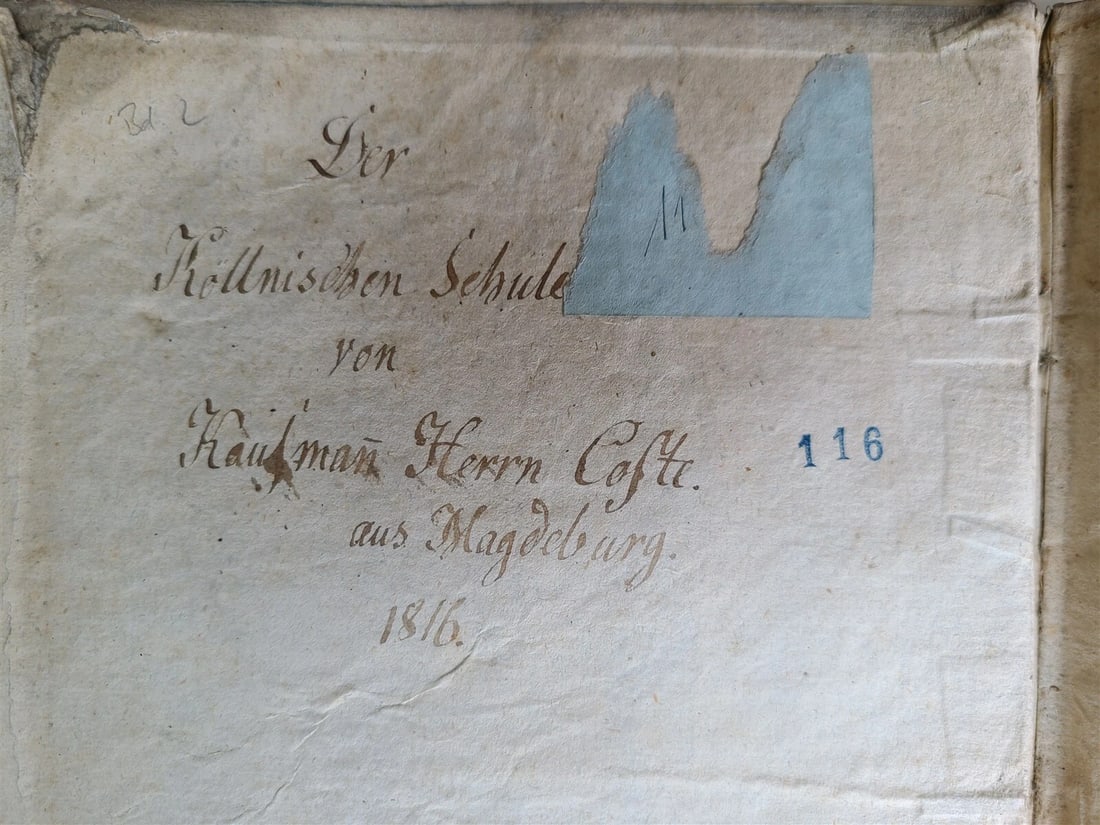 Bd. 2
Der
11
Köllnischen Schule
von
Kaufman̄ Herrn Coste.
116
aus Magdeburg.
1816.